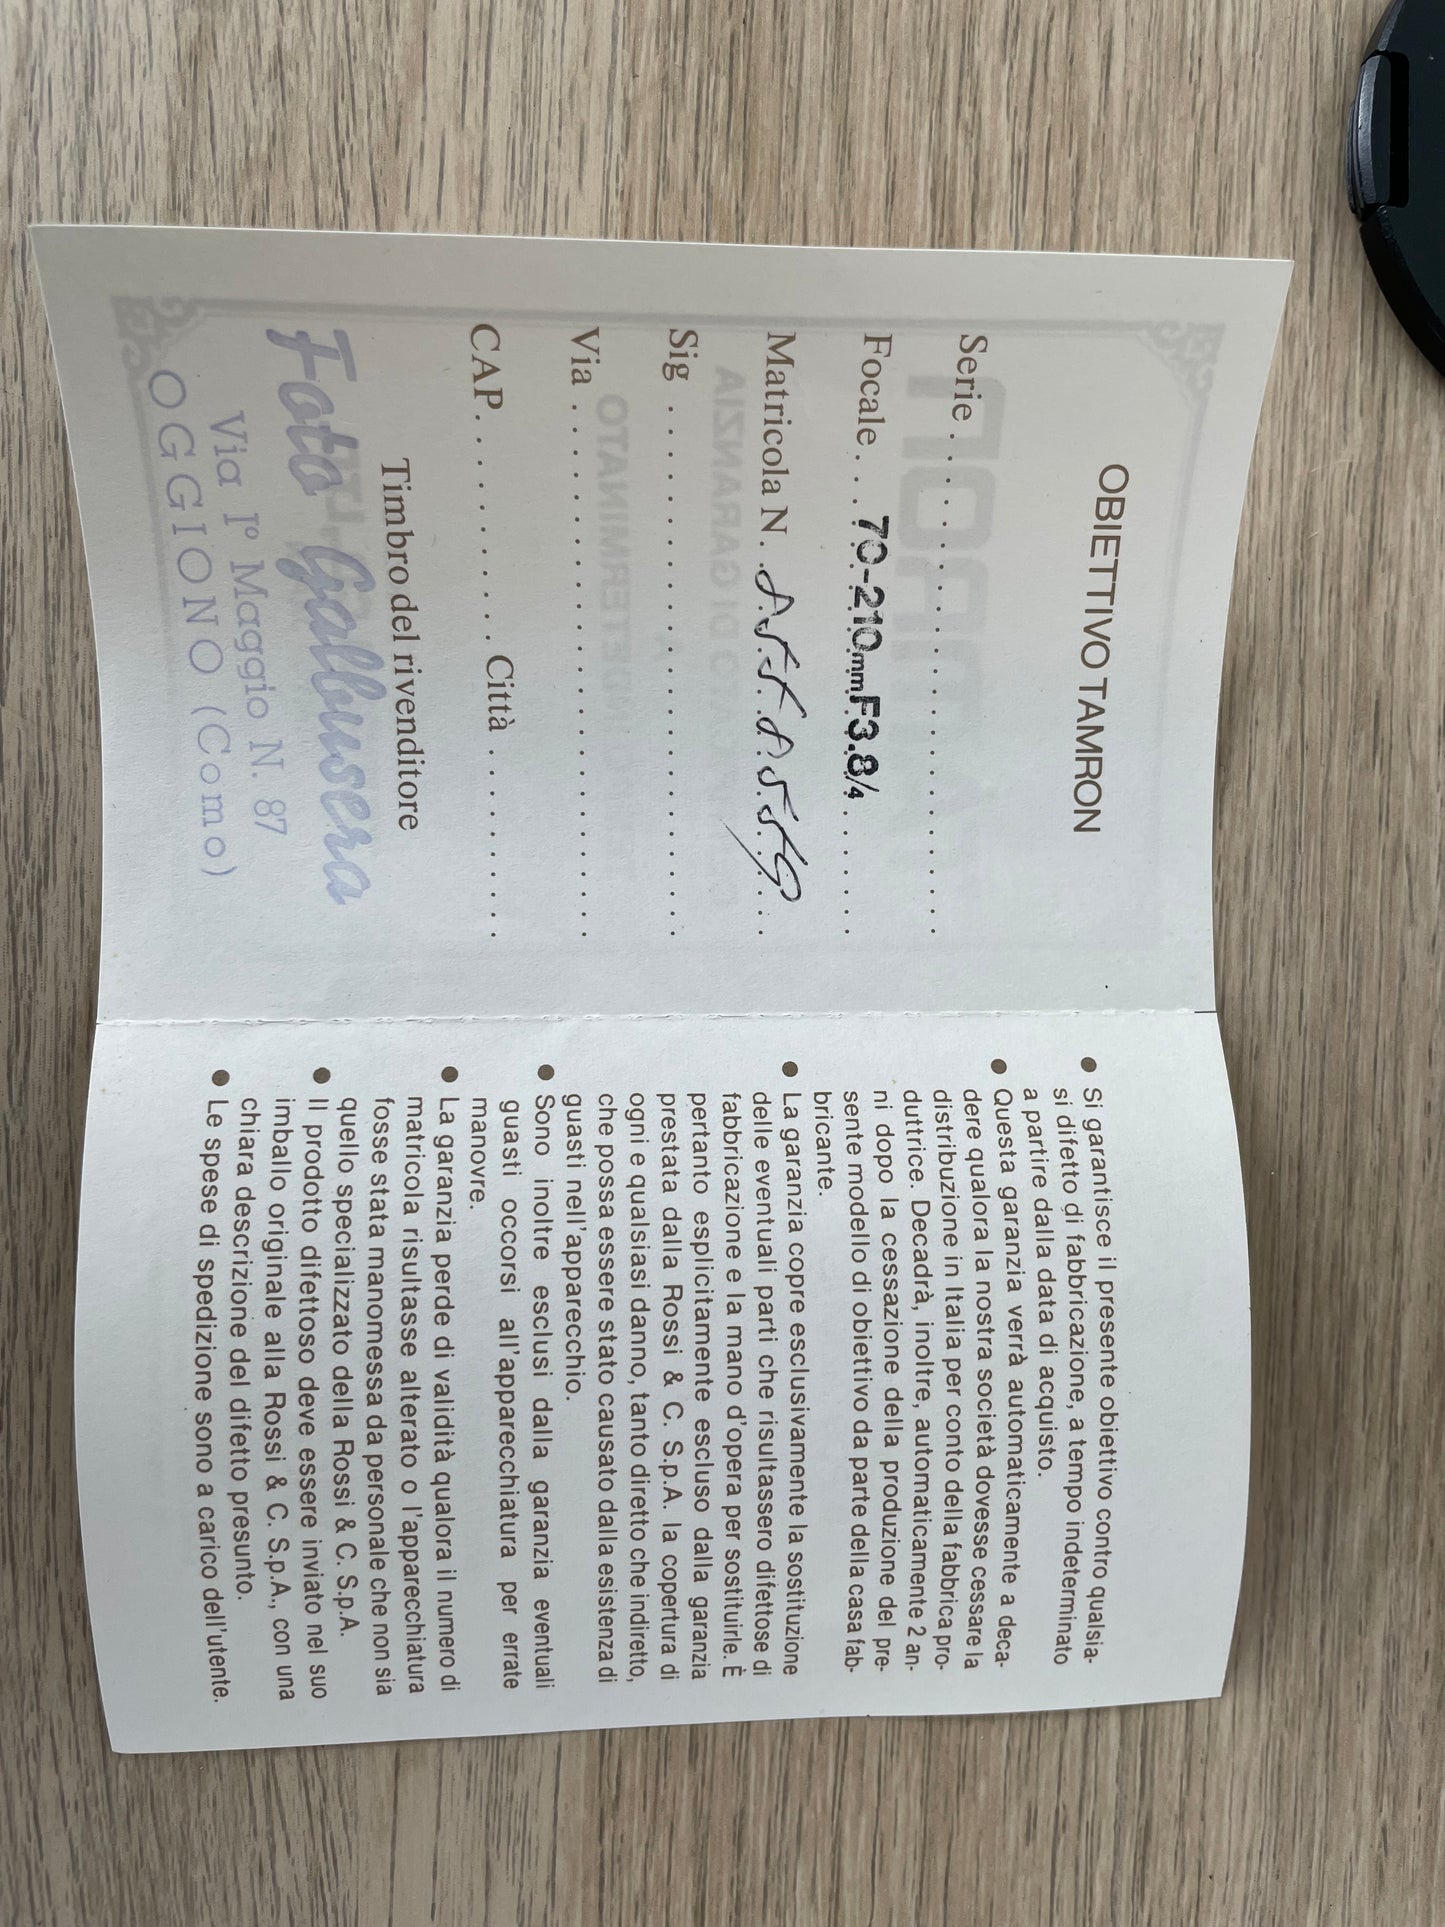 OBIETTIVO TAMRON
Serie . . . . . . . . . . . . . . . . . . . . . . .
Focale . . . 70-210mmF3.8/4 . . . . . .
Matricola N. . . .
Sig . . . . . . . . . . . . . . . . . . . . . . . . .
Via . . . . . . . . . . . . . . . . . . . . . . . . .
CAP. . . . . . . . . . Città . . . . . . . . . .
Timbro del rivenditore
Foto Galbusera
Via I° Maggio N. 87
OGGIONO (Como)
● Si garantisce il presente obiettivo contro qualsia-
si difetto di fabbricazione, a tempo indeterminato
a partire dalla data di acquisto.
● Questa garanzia verrà automaticamente a deca-
dere qualora la nostra società dovesse cessare la
distribuzione in Italia per conto della fabbrica pro-
duttrice. Decadrà, inoltre, automaticamente 2 an-
ni dopo la cessazione della produzione del pre-
sente modello di obiettivo da parte della casa fab-
bricante.
● La garanzia copre esclusivamente la sostituzione
delle eventuali parti che risultassero difettose di
fabbricazione e la mano d'opera per sostituirle. È
pertanto esplicitamente escluso dalla garanzia
prestata dalla Rossi & C. S.p.A. la copertura di
ogni e qualsiasi danno, tanto diretto che indiretto,
che possa essere stato causato dalla esistenza di
guasti nell'apparecchio.
● Sono inoltre esclusi dalla garanzia eventuali
guasti occorsi all'apparecchiatura per errate
manovre.
● La garanzia perde di validità qualora il numero di
matricola risultasse alterato o l'apparecchiatura
fosse stata manomessa da personale che non sia
quello specializzato della Rossi & C. S.p.A.
● Il prodotto difettoso deve essere inviato nel suo
imballo originale alla Rossi & C. S.p.A., con una
chiara descrizione del difetto presunto.
● Le spese di spedizione sono a carico dell'utente.